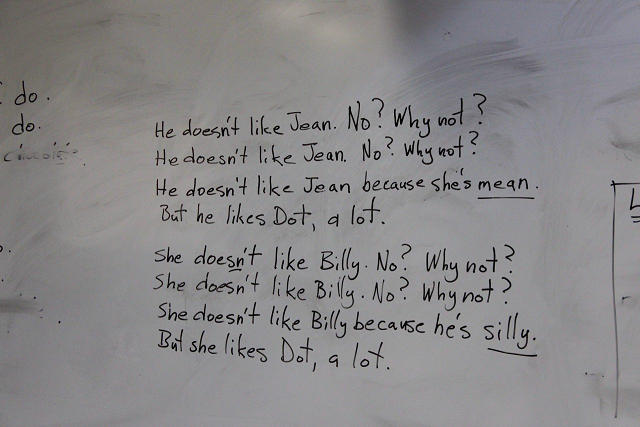 do.
do.
He doesn't like Jean. No? Why not?
He doesn't like Jean. No? Why not?
He doesn't like Jean because she's mean.
But he likes Dot, a lot.
She doesn't like Billy. No? Why not?
She doesn't like Billy. No? Why not?
She doesn't like Billy because he's silly.
But she likes Dot, a lot.